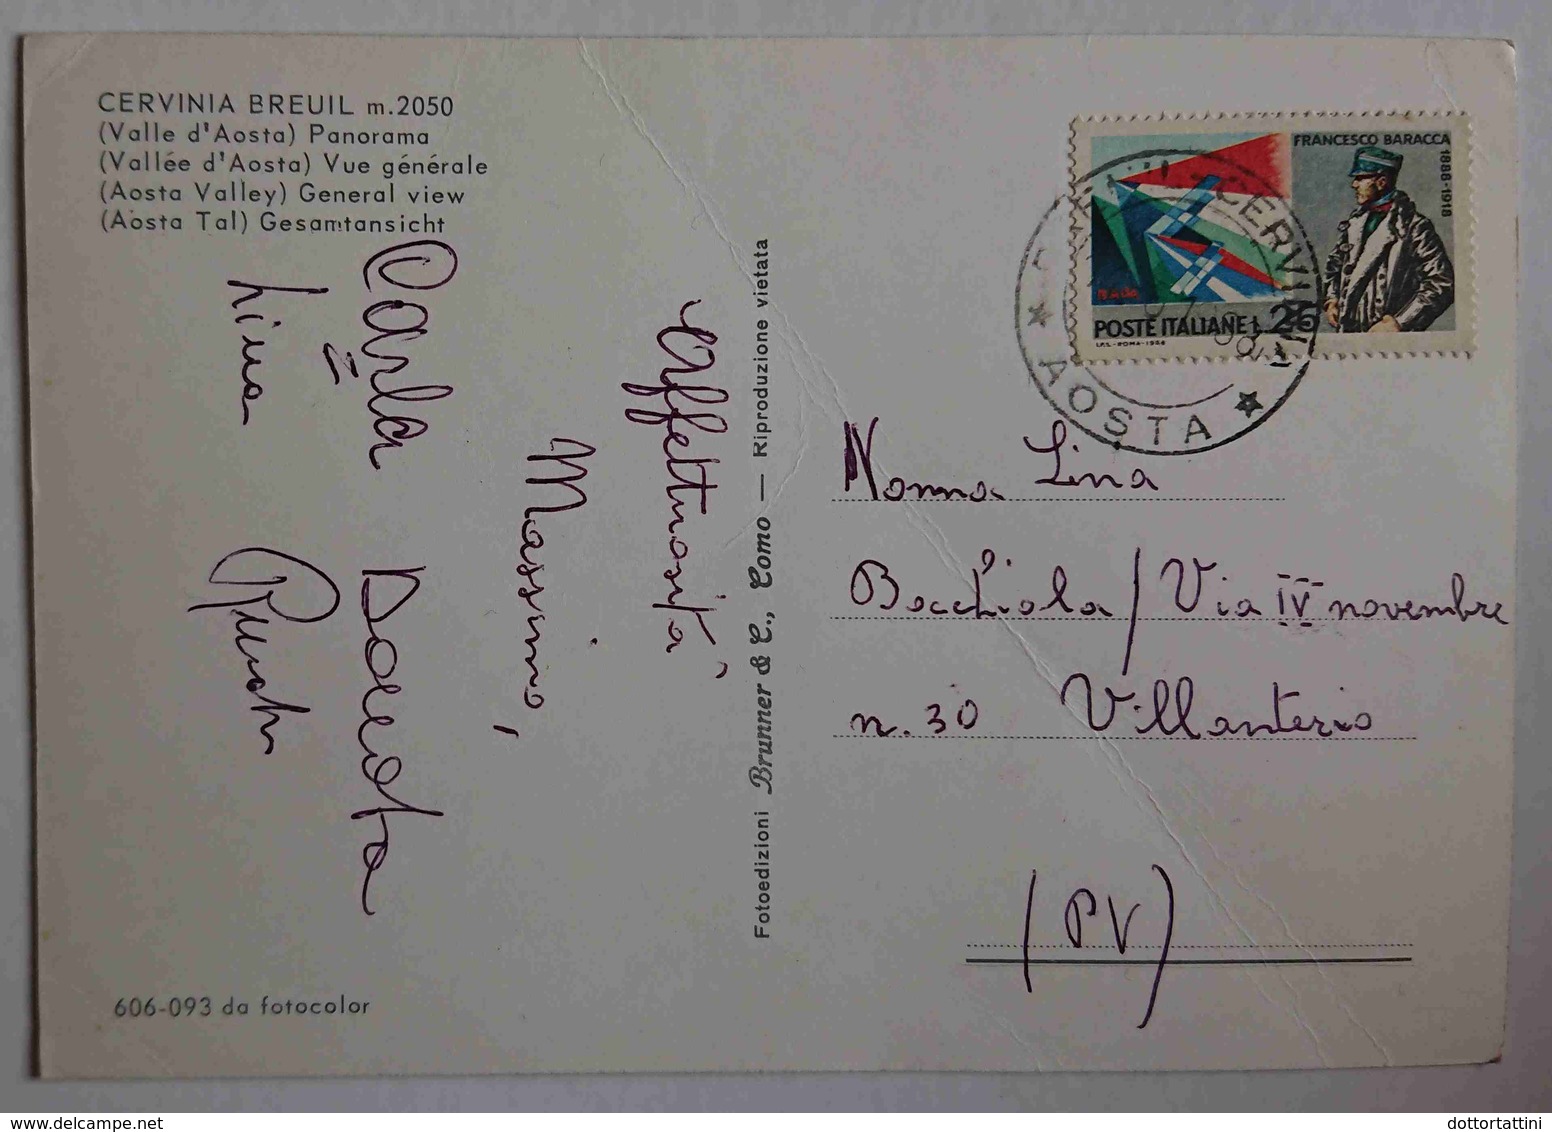 CERVINIA BREUIL m.2050
(Valle d'Aosta) Panorama
(Vallée d'Aosta) Vue générale
(Aosta Valley) General view
(Aosta Tal) Gesamtansicht
Affettuosità
Massimo,
Carla Donota
Lina
606-093 da fotocolor
Fotoedizioni Brunner & C., Como — Riproduzione vietata
FRANCESCO BARACCA
1888-1918
POSTE ITALIANE L.25
I.P.S.-ROMA-1968
CERVINIA
AOSTA
Nonna Lina
Bocchiola / Via IV novembre
n. 30 Villanterio
(PV)
dottortattini